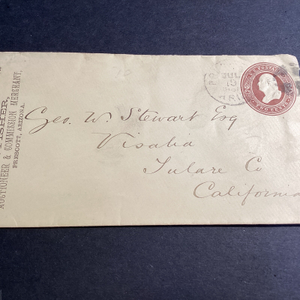 FISHER,
AUCTIONEER & COMMISSION MERCHANT,
PRESCOTT, ARIZONA.
Geo. W. Stewart Esq
Visalia
Tulare Co
California